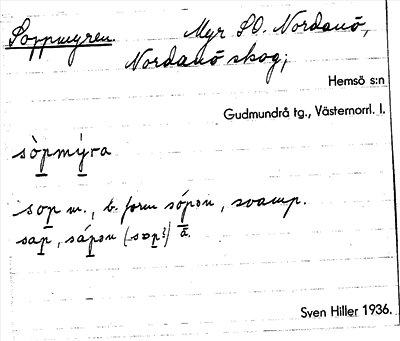 Soppmyren. Myr SO. Nordanö,
Nordanö skog;
Hemsö s:n
Gudmundrå tg., Västernorrl. l.
sòpmýra
sop m., b. form sópən, svamp.
sap, sápən (sɒp?) ā.
Sven Hiller 1936.